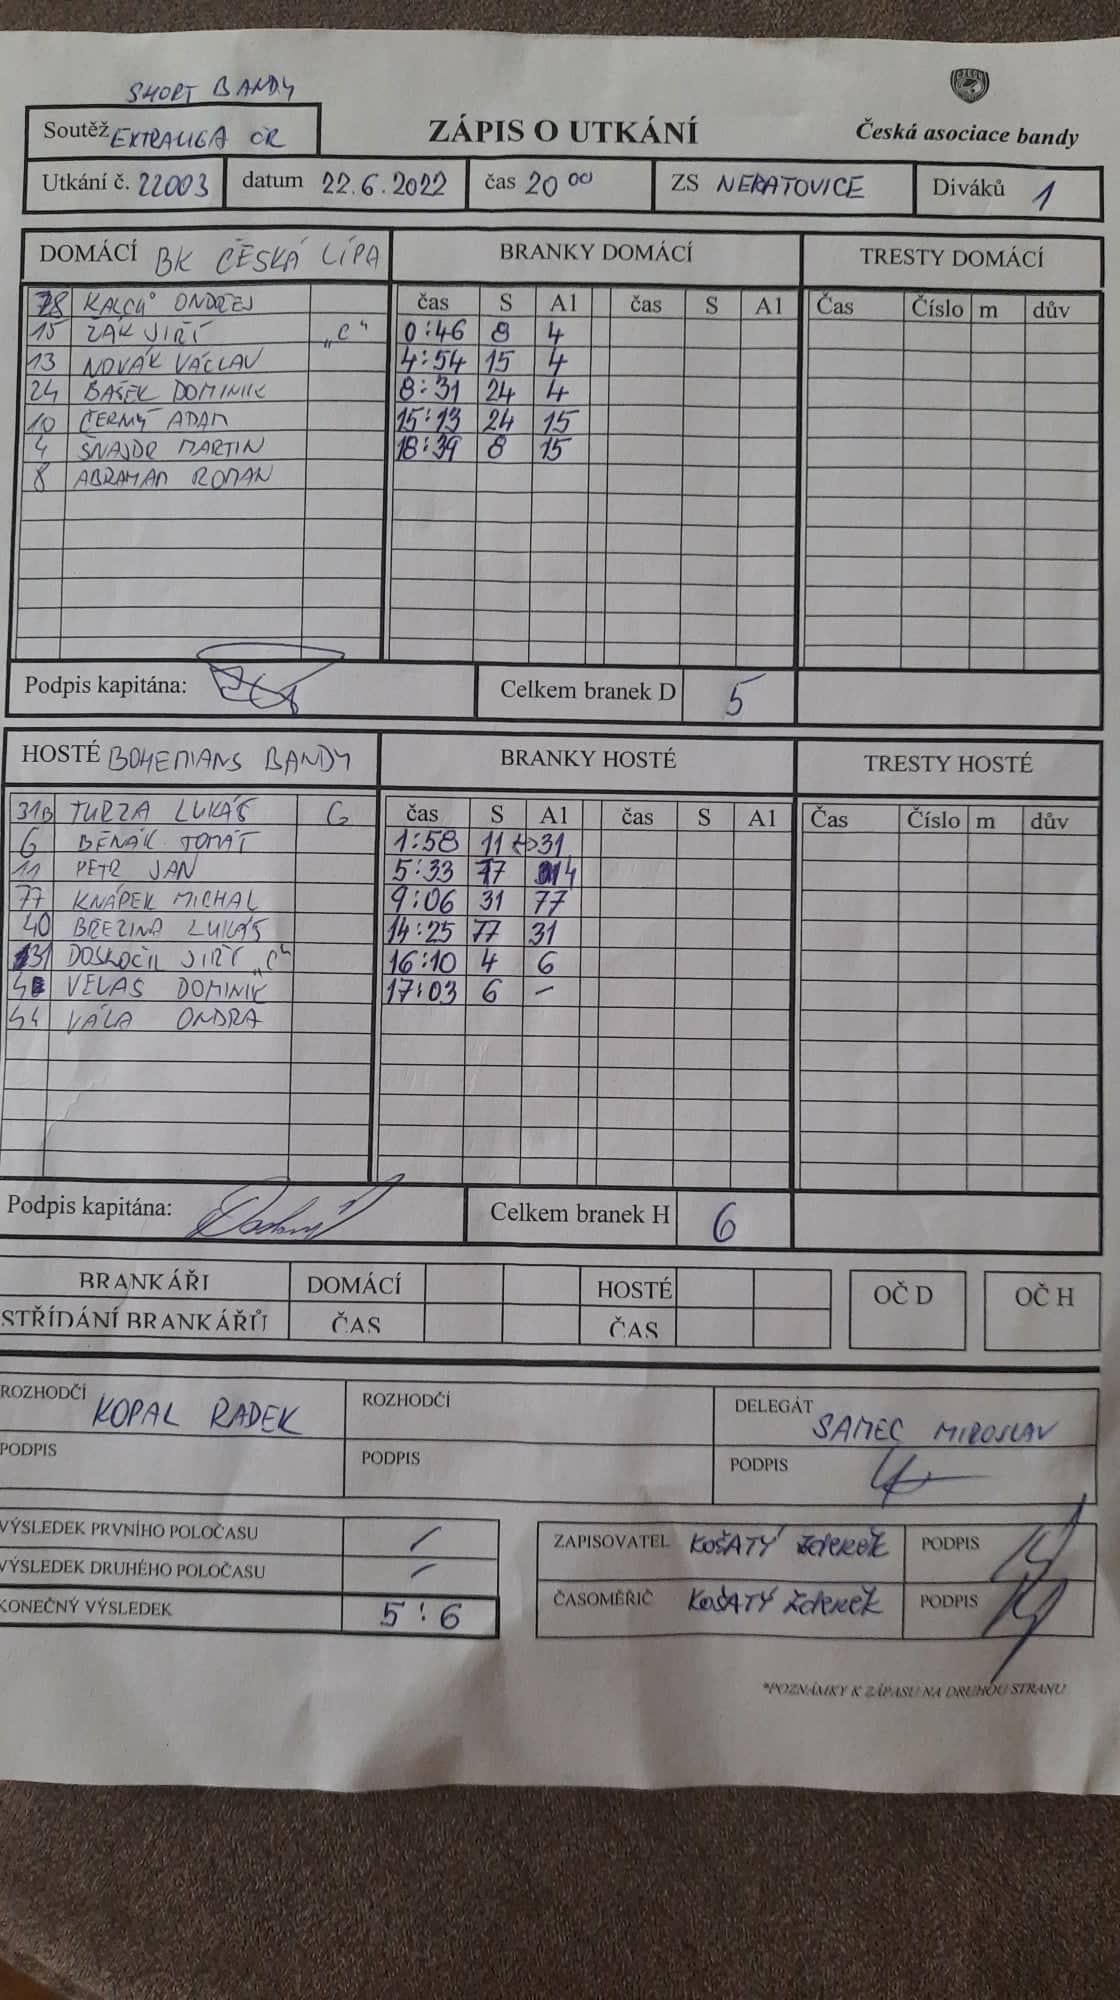 SHORT BANDY
Soutěž EXTRALIGA ČR
ZÁPIS O UTKÁNÍ
Česká asociace bandy
Utkání č. 22003 datum 22.6.2022 čas 20 00 ZS NERATOVICE Diváků 1
DOMÁCÍ BK ČESKÁ LÍPA BRANKY DOMÁCÍ TRESTY DOMÁCÍ
čas S A1 čas S A1 Čas Číslo m dův
78 ONDŘEJ
15 ŽÁK JIŘÍ "C" 0:46 8 4
13 NOVÁK VÁCLAV 4:54 15 4
24 BAŠEK DOMINIK 8:31 24 4
10 ČERNÝ ADAM 15:13 24 15
4 ŠNAJDR MARTIN 18:39 8 15
8 ABRAHAM ROMAN
Podpis kapitána: Celkem branek D 5
HOSTÉ BOHEMIANS BANDY BRANKY HOSTÉ TRESTY HOSTÉ
čas S A1 čas S A1 Čas Číslo m dův
31B TURZA LUKÁŠ G
6 BENÁK TOMÁŠ 1:58 11 <-> 31
11 PETR JAN 5:33 77
77 KNÁPEK MICHAL 9:06 31 77
40 BŘEZINA LUKÁŠ 14:25 77 31
31 DOSKOČIL JIŘÍ "C" 16:10 4 6
VELAS DOMINIK 17:03 6 -
44 VÁLA ONDRA
Podpis kapitána: Celkem branek H 6
BRANKÁŘI DOMÁCÍ HOSTÉ OČ D OČ H
STŘÍDÁNÍ BRANKÁŘŮ ČAS ČAS
ROZHODČÍ KOPAL RADEK ROZHODČÍ DELEGÁT SAMEC MIROSLAV
PODPIS PODPIS PODPIS
VÝSLEDEK PRVNÍHO POLOČASU /
VÝSLEDEK DRUHÉHO POLOČASU /
KONEČNÝ VÝSLEDEK 5:6
ZAPISOVATEL KOŠATÝ Zdeněk PODPIS
ČASOMĚŘIČ KOŠATÝ Zdeněk PODPIS
*POZNÁMKY K ZÁPASU NA DRUHOU STRANU